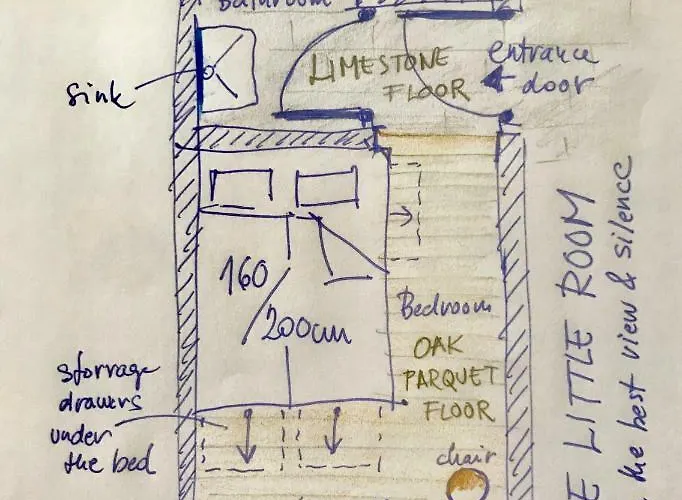 Bathroom
Sink
LIMESTONE
FLOOR
entrance
door
160
/200cm
Bedroom
OAK
PARQUET
FLOOR
storrage
drawers
under
the bed
chair
LITTLE ROOM
the best view & silence